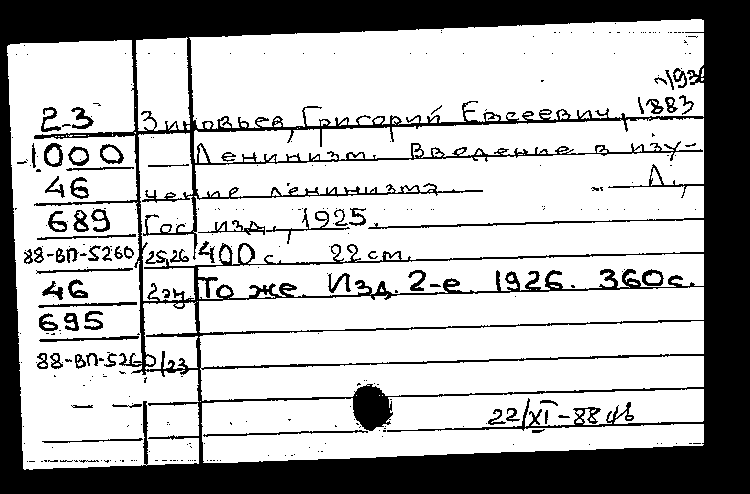 -1936
2-3 Зиновьев, Григорий Евсеевич, 1883
1000 Ленинизм. Введение в изу-
46 чение ленинизма. — Л.,
689 Гос. изд., 1925.
88-ВП-5260/25,26 400 с. 22 см.
46 2 эк. То же. Изд. 2-е. 1926. 360 с.
695
88-ВП-5260/23
22/XI-88